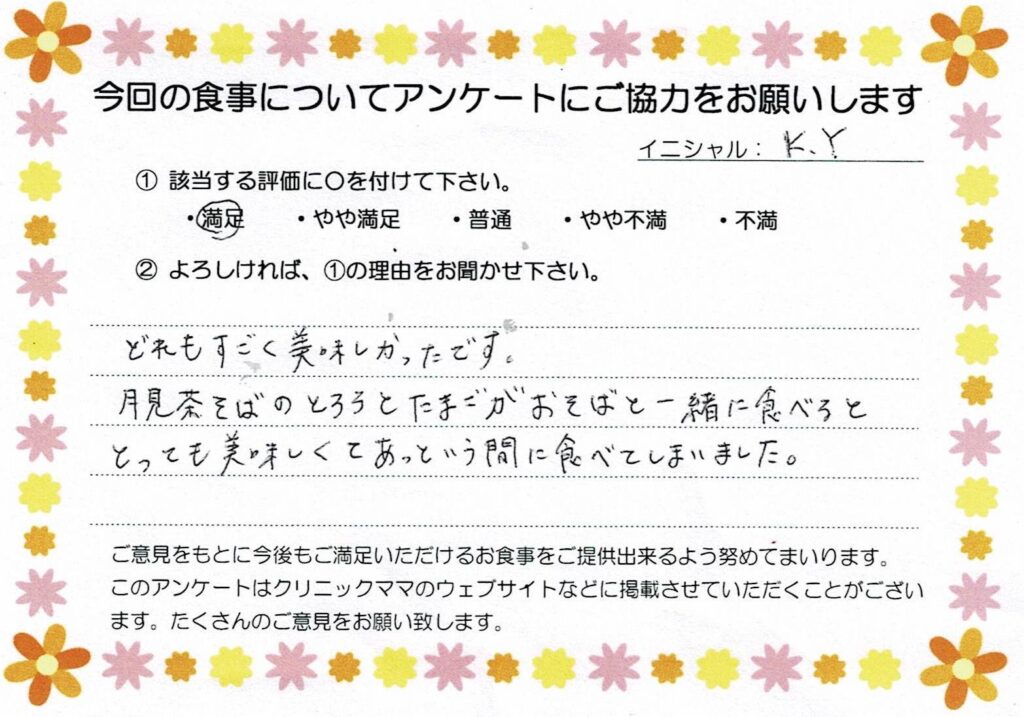 今回の食事についてアンケートにご協力をお願いします
イニシャル： K.Y
① 該当する評価に〇を付けて下さい。
・満足 ・やや満足 ・普通 ・やや不満 ・不満
② よろしければ、①の理由をお聞かせ下さい。
どれもすごく美味しかったです。
月見茶そばのとろろとたまごがおそばと一緒に食べると
とっても美味しくてあっという間に食べてしまいました。
ご意見をもとに今後もご満足いただけるお食事をご提供出来るよう努めてまいります。
このアンケートはクリニックママのウェブサイトなどに掲載させていただくことがござい
ます。たくさんのご意見をお願い致します。